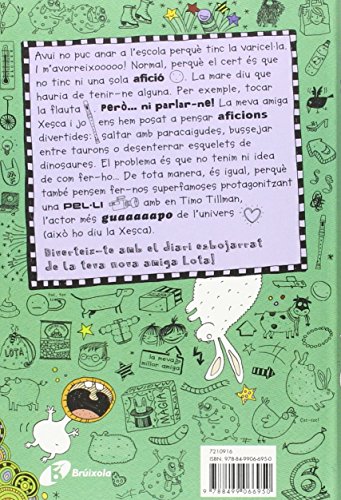 Avui no puc anar a l'escola perquè tinc la varicel·la.
I m'avorreixooooo! Normal, perquè el cert és que
no tinc ni una sola afició. La mare diu que
hauria de tenir-ne alguna. Per exemple, tocar
la flauta Però... ni parlar-ne! La meva amiga
Xesca i jo ens hem posat a pensar aficions
divertides: saltar amb paracaigudes, bussejar
entre taurons o desenterrar esquelets de
dinosaures. El problema és que no tenim ni idea
de com fer-ho... De tota manera, és igual, perquè
també pensem fer-nos superfamoses protagonitzant
una pel·li amb en Timo Tillman,
l'actor més guaaaaaapo de l'univers
(això ho diu la Xesca).
Diverteix-te amb el diari esbojarrat
de la teva nova amiga Lota!
LOTA
la meva
millor amiga
MÀGIA
Brúixola
7210916
ISBN: 978-84-9906-695-0
9 788499 066950